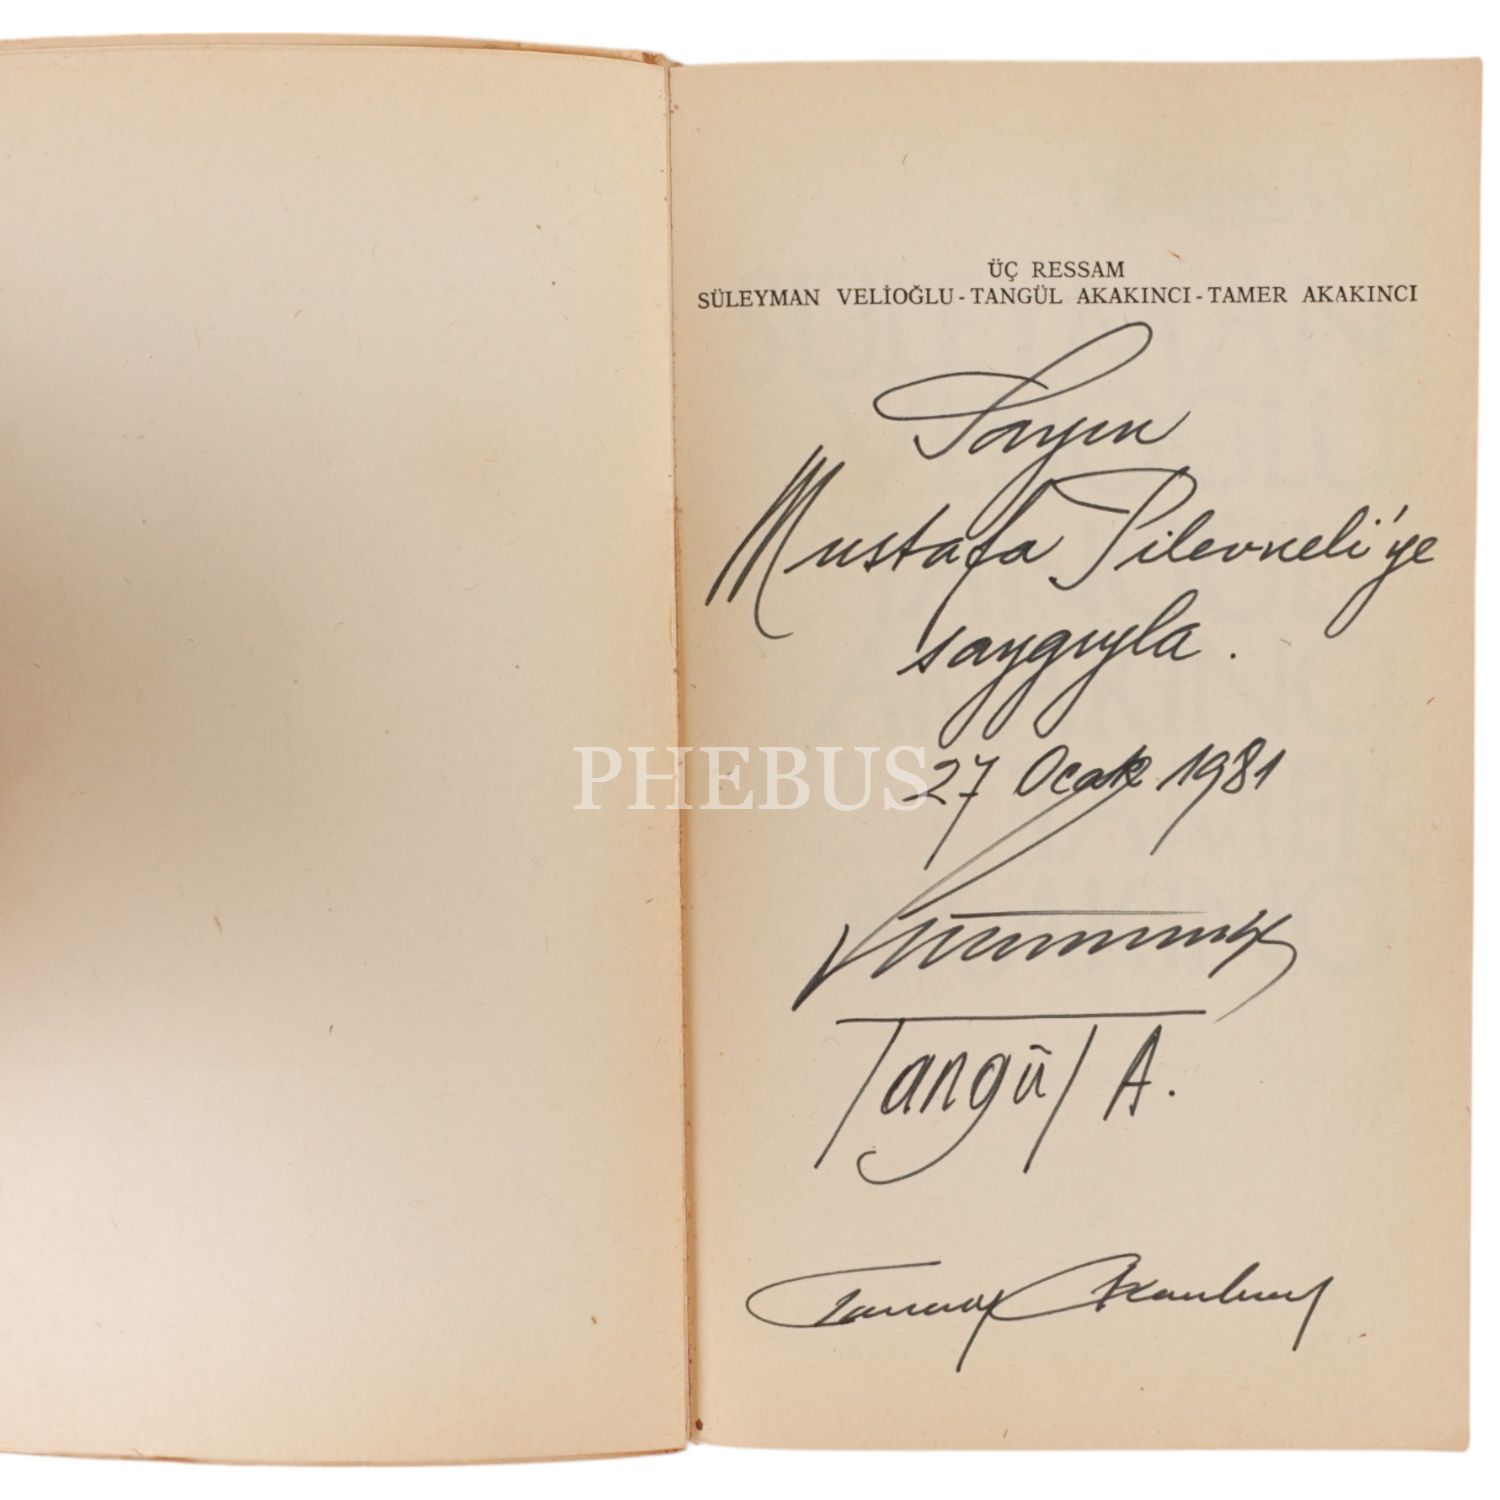 ÜÇ RESSAM
SÜLEYMAN VELİOĞLU-TANGÜL AKAKINCI-TAMER AKAKINCI
Sayın
Mustafa Pilevneli'ye
saygıyla.
PHEBUS
27 Ocak 1981
Tangül A.
Tamer Akakıncı